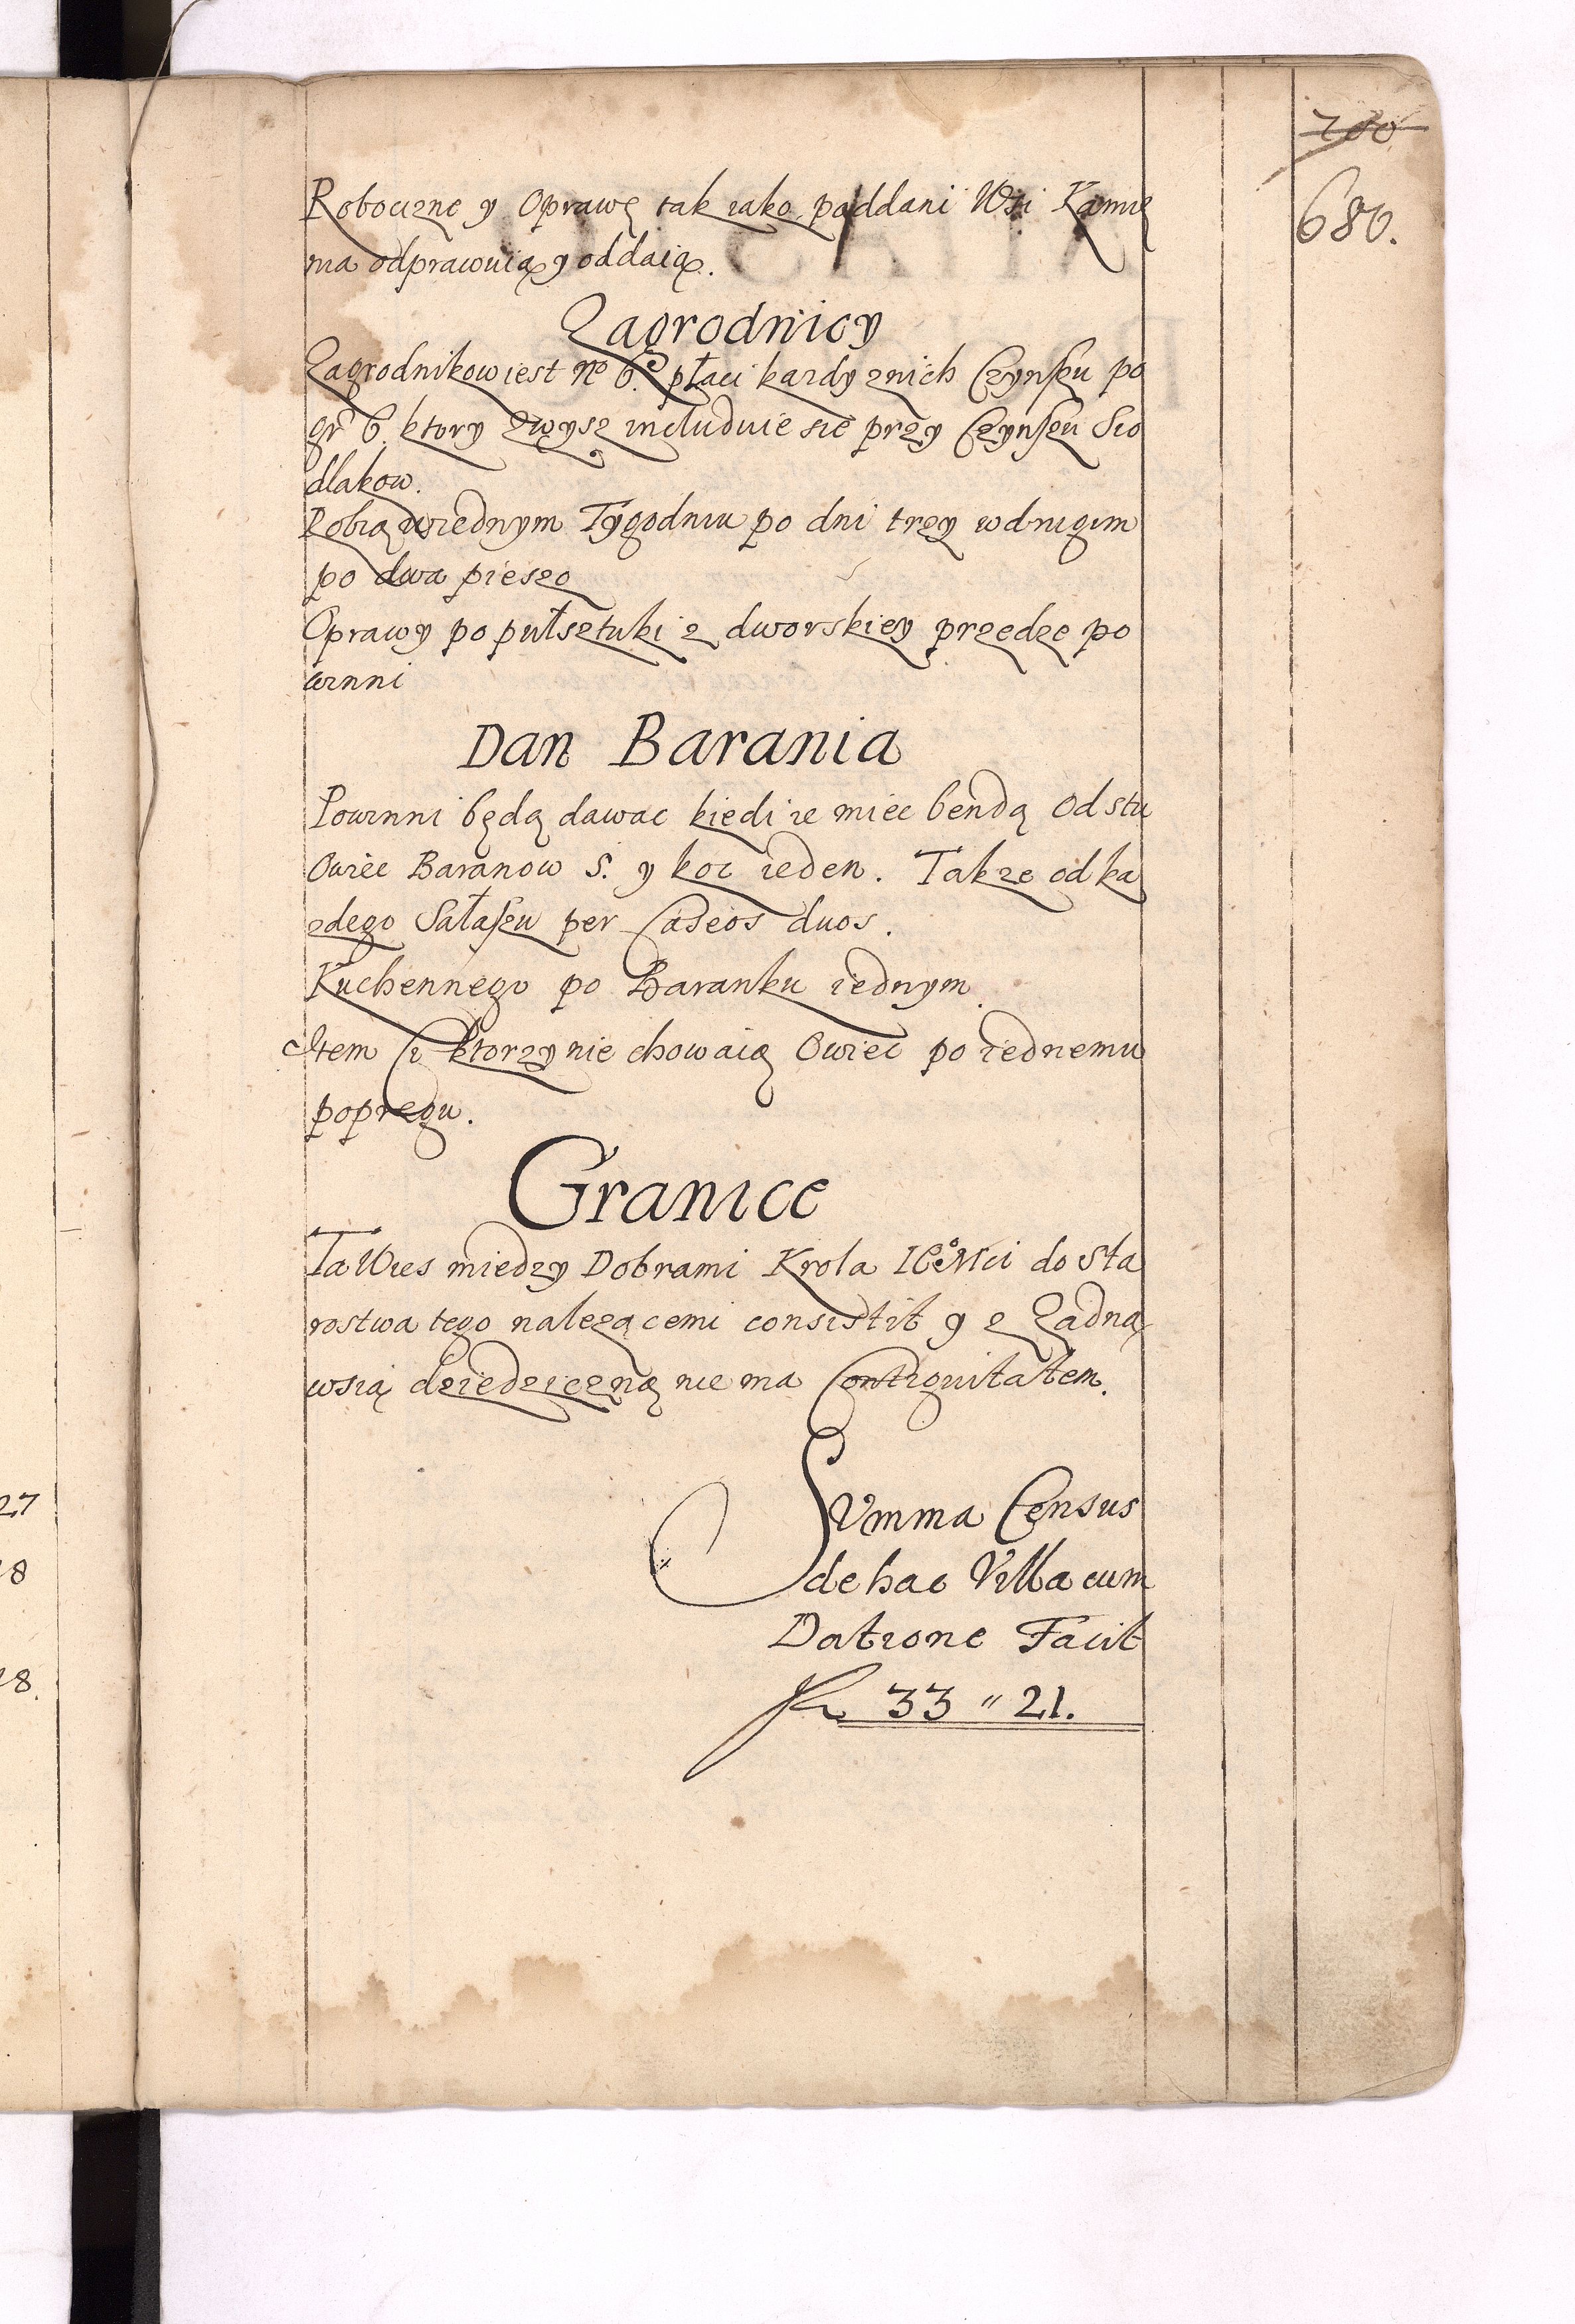 700
680.
Roboczne y Oprawę tak iako poddani Wsi Kamię
ma odprawuią y oddaią.
Zagrodnicy
Zagrodnikow iest No 6. płaci kazdy znich Czynszu po
gr 6. ktory zwysz includuie sie przy Czynszu Sio
dlakow.
Robią wiednym Tygodniu po dni trzy wdrugim
po dwa pieszo
Oprawy po pułsztuki z dworskiey przedze po
winni
Dan Barania
Powinni będą dawac kiedi ie miec bendą Od stu
Owiec Baranow 5. y koc ieden. Takze od ka
zdego Sałaszu per Caseos duos.
Kuchennego po Baranku iednym
Item Ci ktorzy nie chowaią Owiec po iednemu
popregu.
Granice
Ta Wies miedzy Dobrami Krola IEoMci do Sta
rostwa tego nalezącemi consistit y z Zadną
wsią dziedziczną nie ma Contiguitatem.
SVmma Census
de hac Villa cum
Datione Facit
fl 33 " 21.
27
18
18.